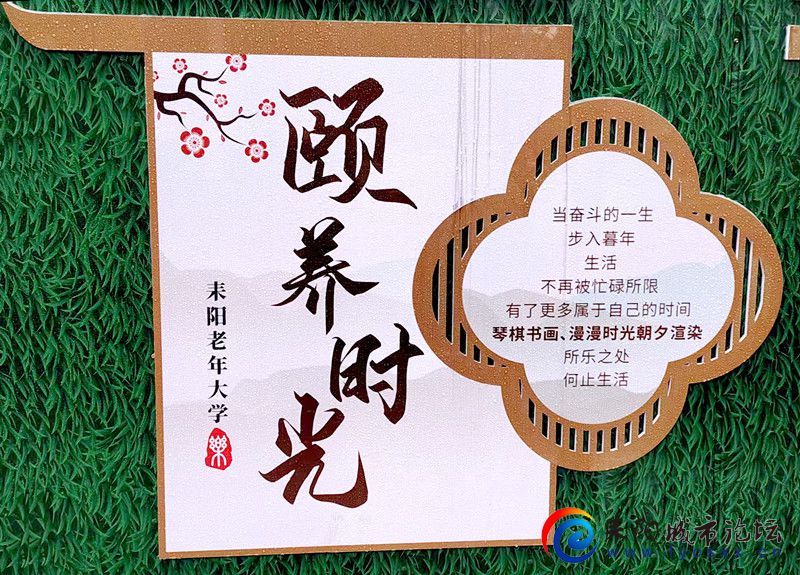 颐养时光
耒阳老年大学
樂
当奋斗的一生
步入暮年
生活
不再被忙碌所限
有了更多属于自己的时间
琴棋书画、漫漫时光朝夕渲染
所乐之处
何止生活
耒阳城市论坛